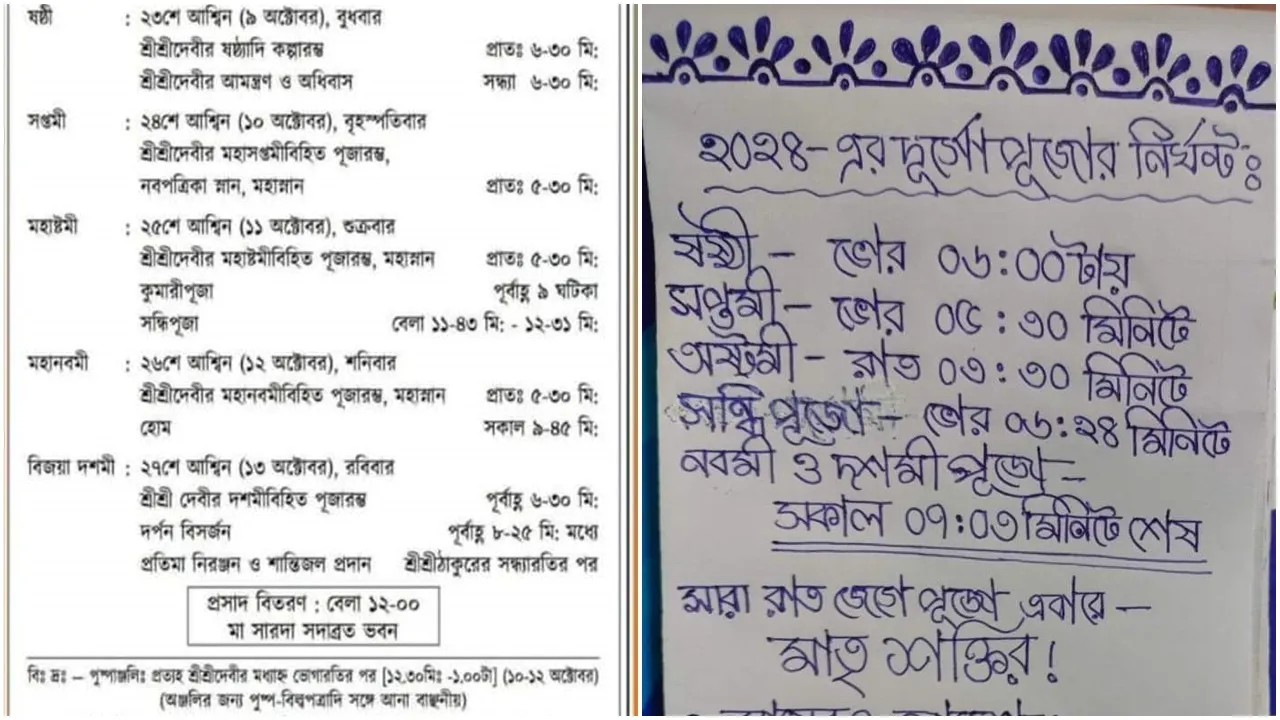 ষষ্ঠী : ২৩শে আশ্বিন (৯ অক্টোবর), বুধবার
শ্রীশ্রীদেবীর ষষ্ঠ্যাদি কল্পারম্ভ প্রাতঃ ৬-৩০ মি:
শ্রীশ্রীদেবীর আমন্ত্রণ ও অধিবাস সন্ধ্যা ৬-৩০ মি:
সপ্তমী : ২৪শে আশ্বিন (১০ অক্টোবর), বৃহস্পতিবার
শ্রীশ্রীদেবীর মহাসপ্তমীবিহিত পূজারম্ভ,
নবপত্রিকা স্নান, মহাস্নান প্রাতঃ ৫-৩০ মি:
মহাষ্টমী : ২৫শে আশ্বিন (১১ অক্টোবর), শুক্রবার
শ্রীশ্রীদেবীর মহাষ্টমীবিহিত পূজারম্ভ, মহাস্নান প্রাতঃ ৫-৩০ মি:
কুমারীপূজা পূর্বাহ্ণ ৯ ঘটিকা
সন্ধিপূজা বেলা ১১-৪৩ মি: - ১২-৩১ মি:
মহানবমী : ২৬শে আশ্বিন (১২ অক্টোবর), শনিবার
শ্রীশ্রীদেবীর মহানবমীবিহিত পূজারম্ভ, মহাস্নান প্রাতঃ ৫-৩০ মি:
হোম সকাল ৯-৪৫ মি:
বিজয়া দশমী : ২৭শে আশ্বিন (১৩ অক্টোবর), রবিবার
শ্রীশ্রী দেবীর দশমীবিহিত পূজারম্ভ পূর্বাহ্ণ ৬-৩০ মি:
দর্পন বিসর্জন পূর্বাহ্ণ ৮-২৫ মি: মধ্যে
প্রতিমা নিরঞ্জন ও শান্তিজল প্রদান শ্রীশ্রীঠাকুরের সন্ধ্যারতির পর
প্রসাদ বিতরণ : বেলা ১২-০০
মা সারদা সদাব্রত ভবন
বিঃ দ্রঃ – পুষ্পাঞ্জলিঃ প্রত্যহ শ্রীশ্রীদেবীর মধ্যাহ্ন ভোগারতির পর [১২.৩০মিঃ -১.০০টা] (১০-১২ অক্টোবর)
(অঞ্জলির জন্য পুষ্প-বিল্বপত্রাদি সঙ্গে আনা বাঞ্ছনীয়)
২০২৪-এর দূর্গো পূজোর নির্ঘন্টঃ
ষষ্ঠী – ভোর ০৬:০০টায়
সপ্তমী – ভোর ০৫:৩০ মিনিটে
অষ্টমী – রাত ০৩:৩০ মিনিটে
সন্ধি পূজো – ভোর ০৬:২৪ মিনিটে
নবমী ও দশমী পূজো –
সকাল ০৭:০৩ মিনিটে শেষ
সারা রাত জেগে পূজো এবারে –
মাতৃ শক্তির!